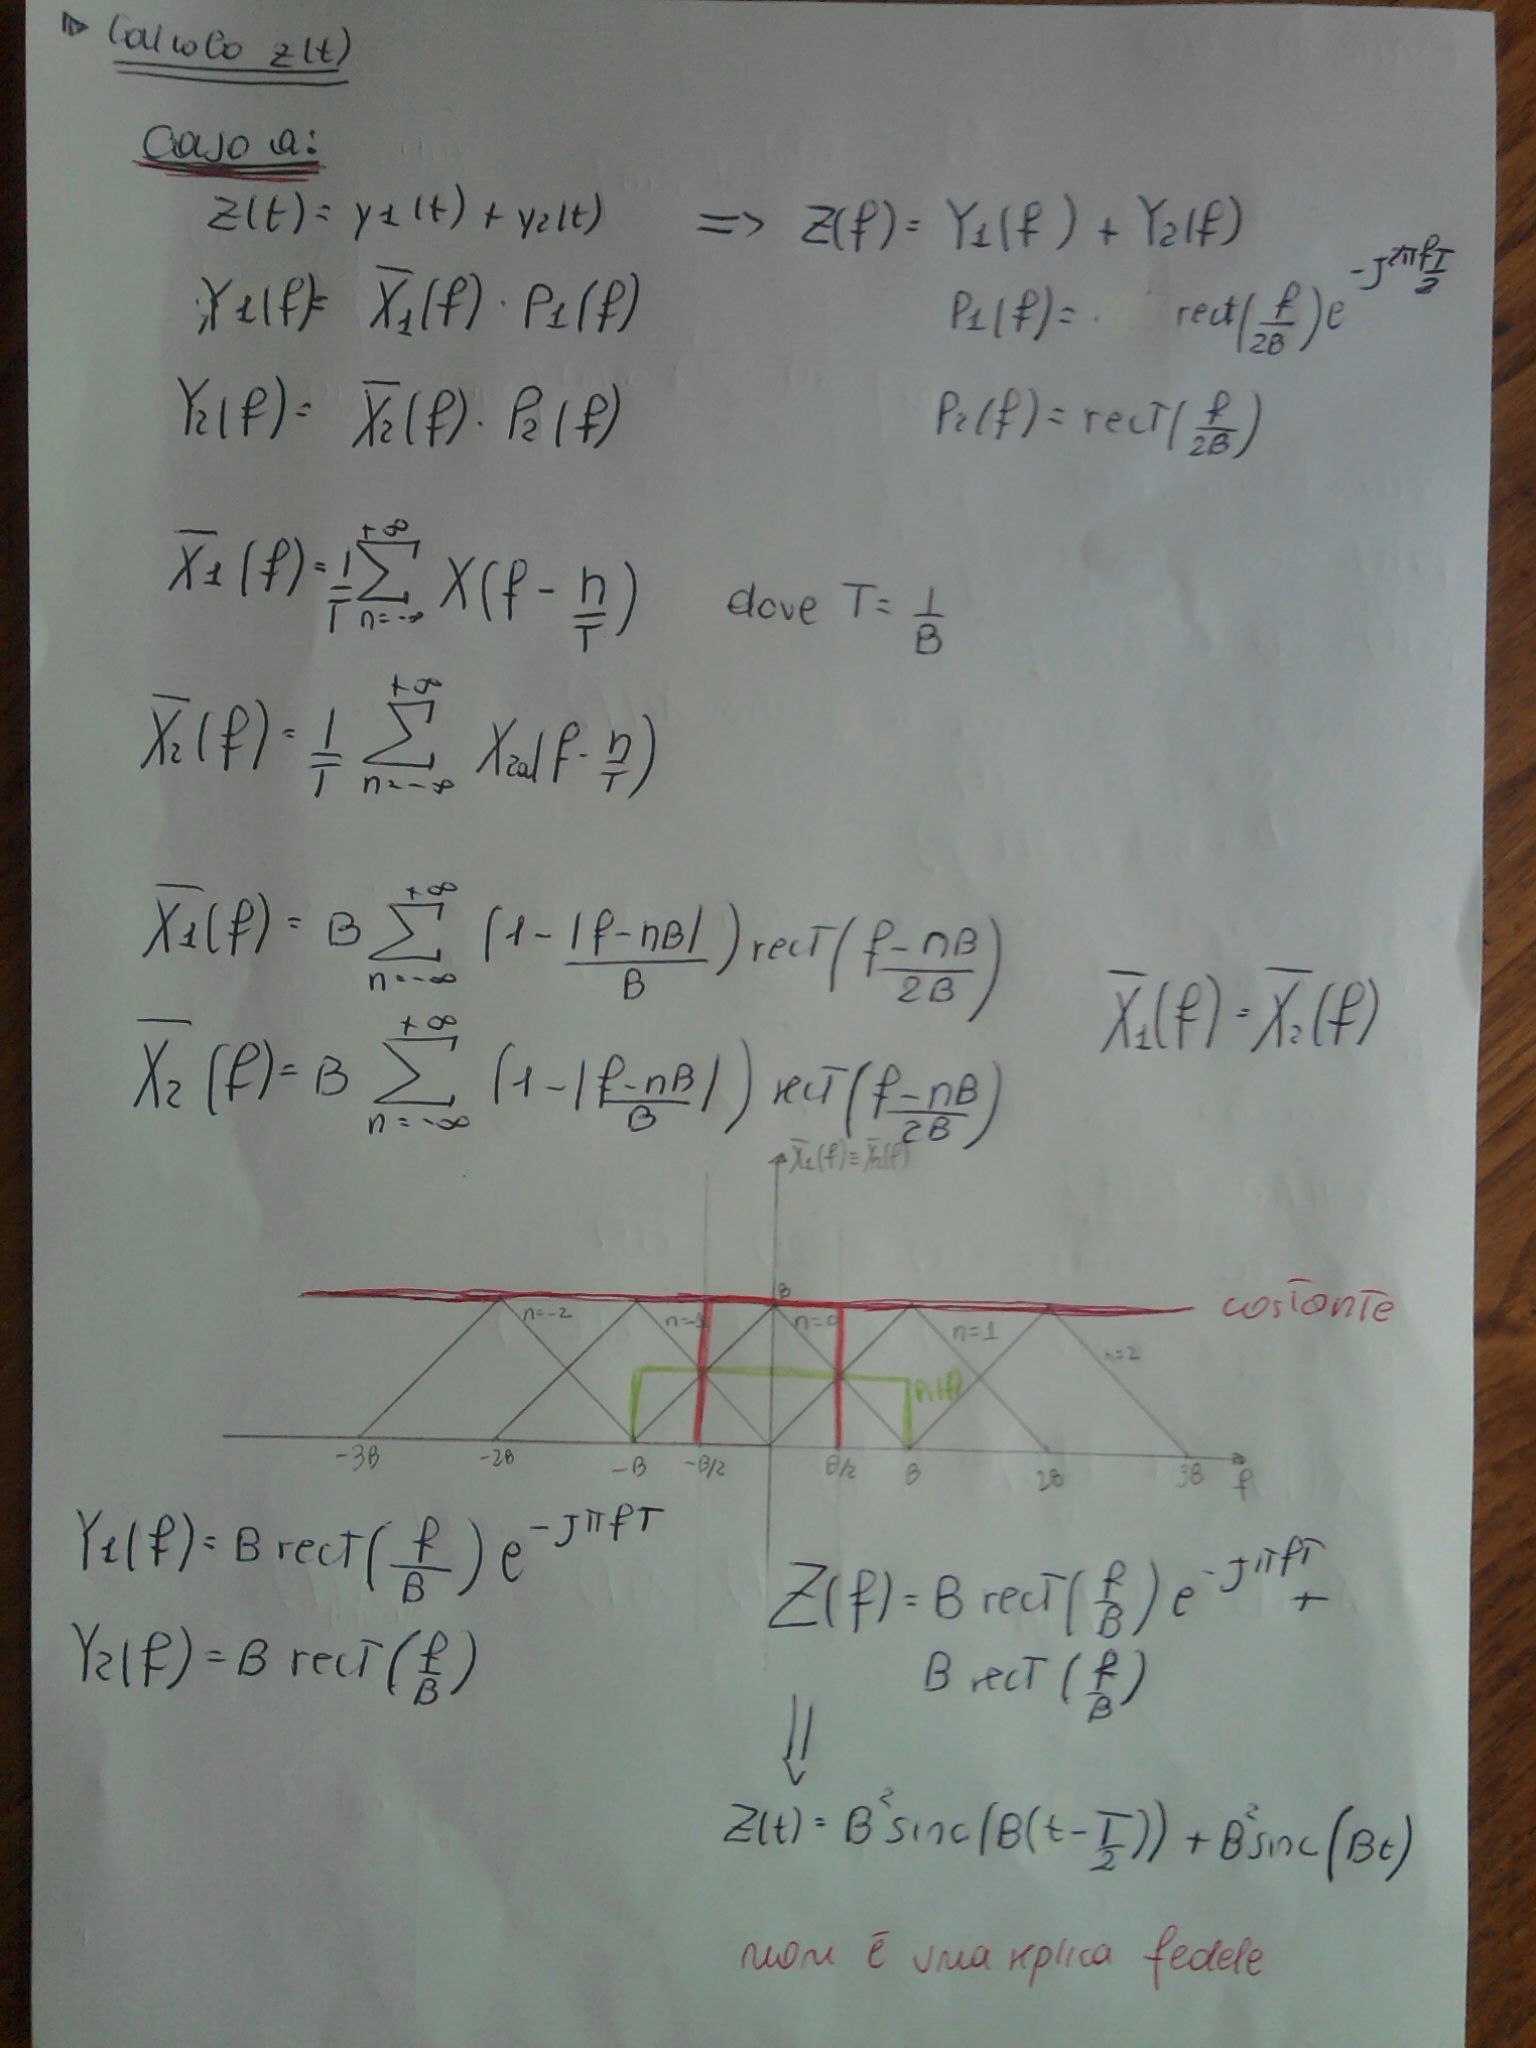 Calcolo z(t)
Caso a:
Z(t) = y1(t) + y2(t) => Z(f) = Y1(f) + Y2(f)
Y1(f) = X̄1(f) · P1(f) P1(f) = rect(f/2B) e^-J2πfT/2
Y2(f) = X̄2(f) · P2(f) P2(f) = rect(f/2B)
X̄1(f) = 1/T Σ n=-∞ +∞ X(f - n/T) dove T = 1/B
X̄2(f) = 1/T Σ n=-∞ +∞ X2a(f - n/T)
X̄1(f) = B Σ n=-∞ +∞ (1 - |f-nB|/B) rect(f-nB/2B)
X̄1(f) = X̄2(f)
X̄2(f) = B Σ n=-∞ +∞ (1 - |f-nB/B|) rect(f-nB/2B)
X̄1(f) ≡ X̄2(f)
B
costante
n=-2 n=-1 n=0 n=1 n=2
-3B -2B -B -B/2 B/2 B 2B 3B f
Y1(f) = B rect(f/B) e^-JπfT
Z(f) = B rect(f/B) e^-JπfT +
B rect(f/B)
Y2(f) = B rect(f/B)
⇓
Z(t) = B² sinc(B(t - T/2)) + B² sinc(Bt)
non è una replica fedele